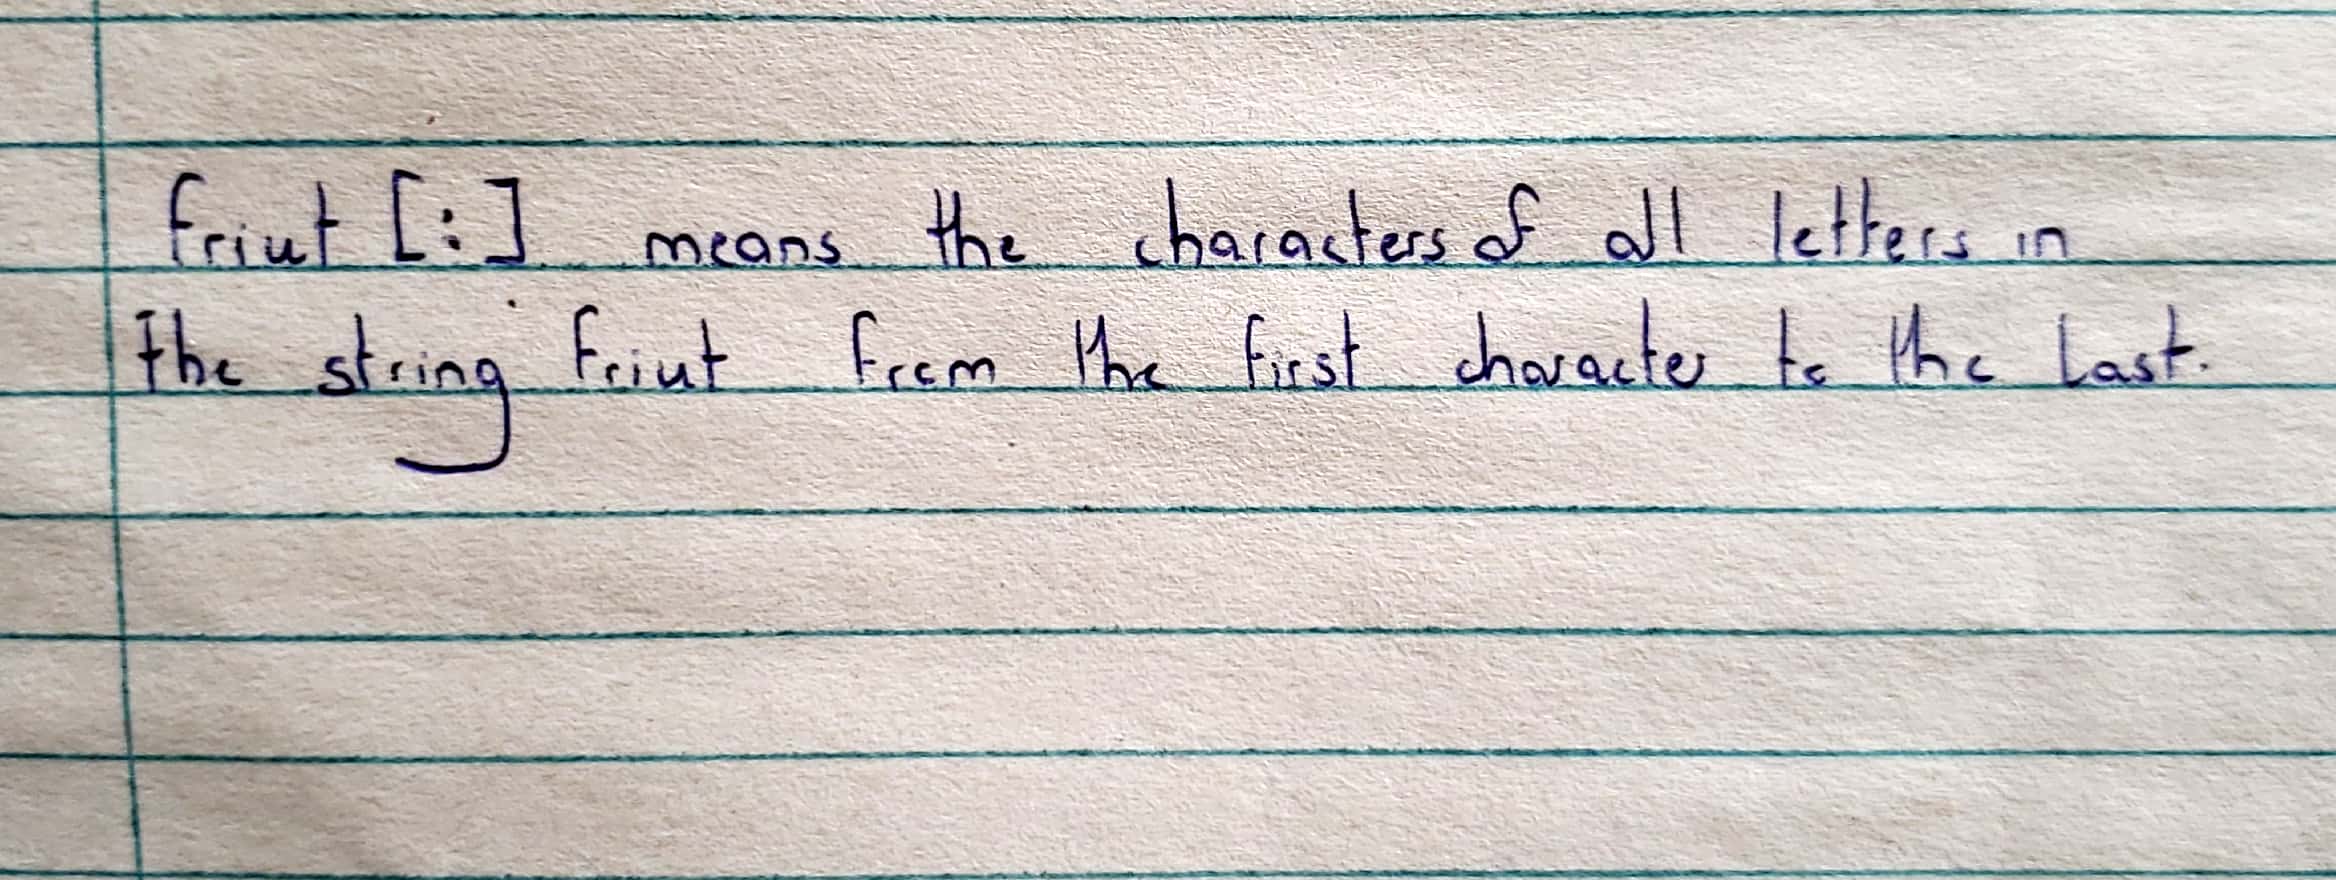 friut [:] means the characters of all letters in
the string friut from the first character to the last.